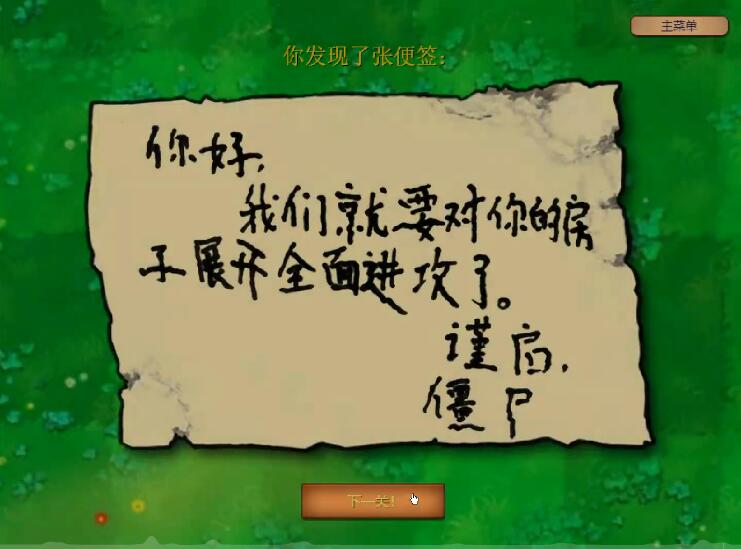 主菜单
你发现了张便签：
你好，
我们就要对你的房
子展开全面进攻了。
谨启，
僵尸
下一关！